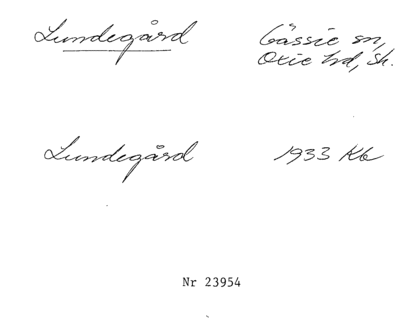 Lundegård
Gässie sn,
Oxie hd, Sk.
Lundegård
1933 Kb
Nr 23954